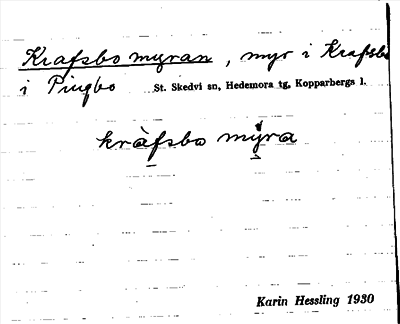 Krafsbo myran, myr i Krafsbo
i Pingbo St. Skedvi sn, Hedemora tg, Kopparbergs l.
kràfsbo mýra
Karin Hessling 1930